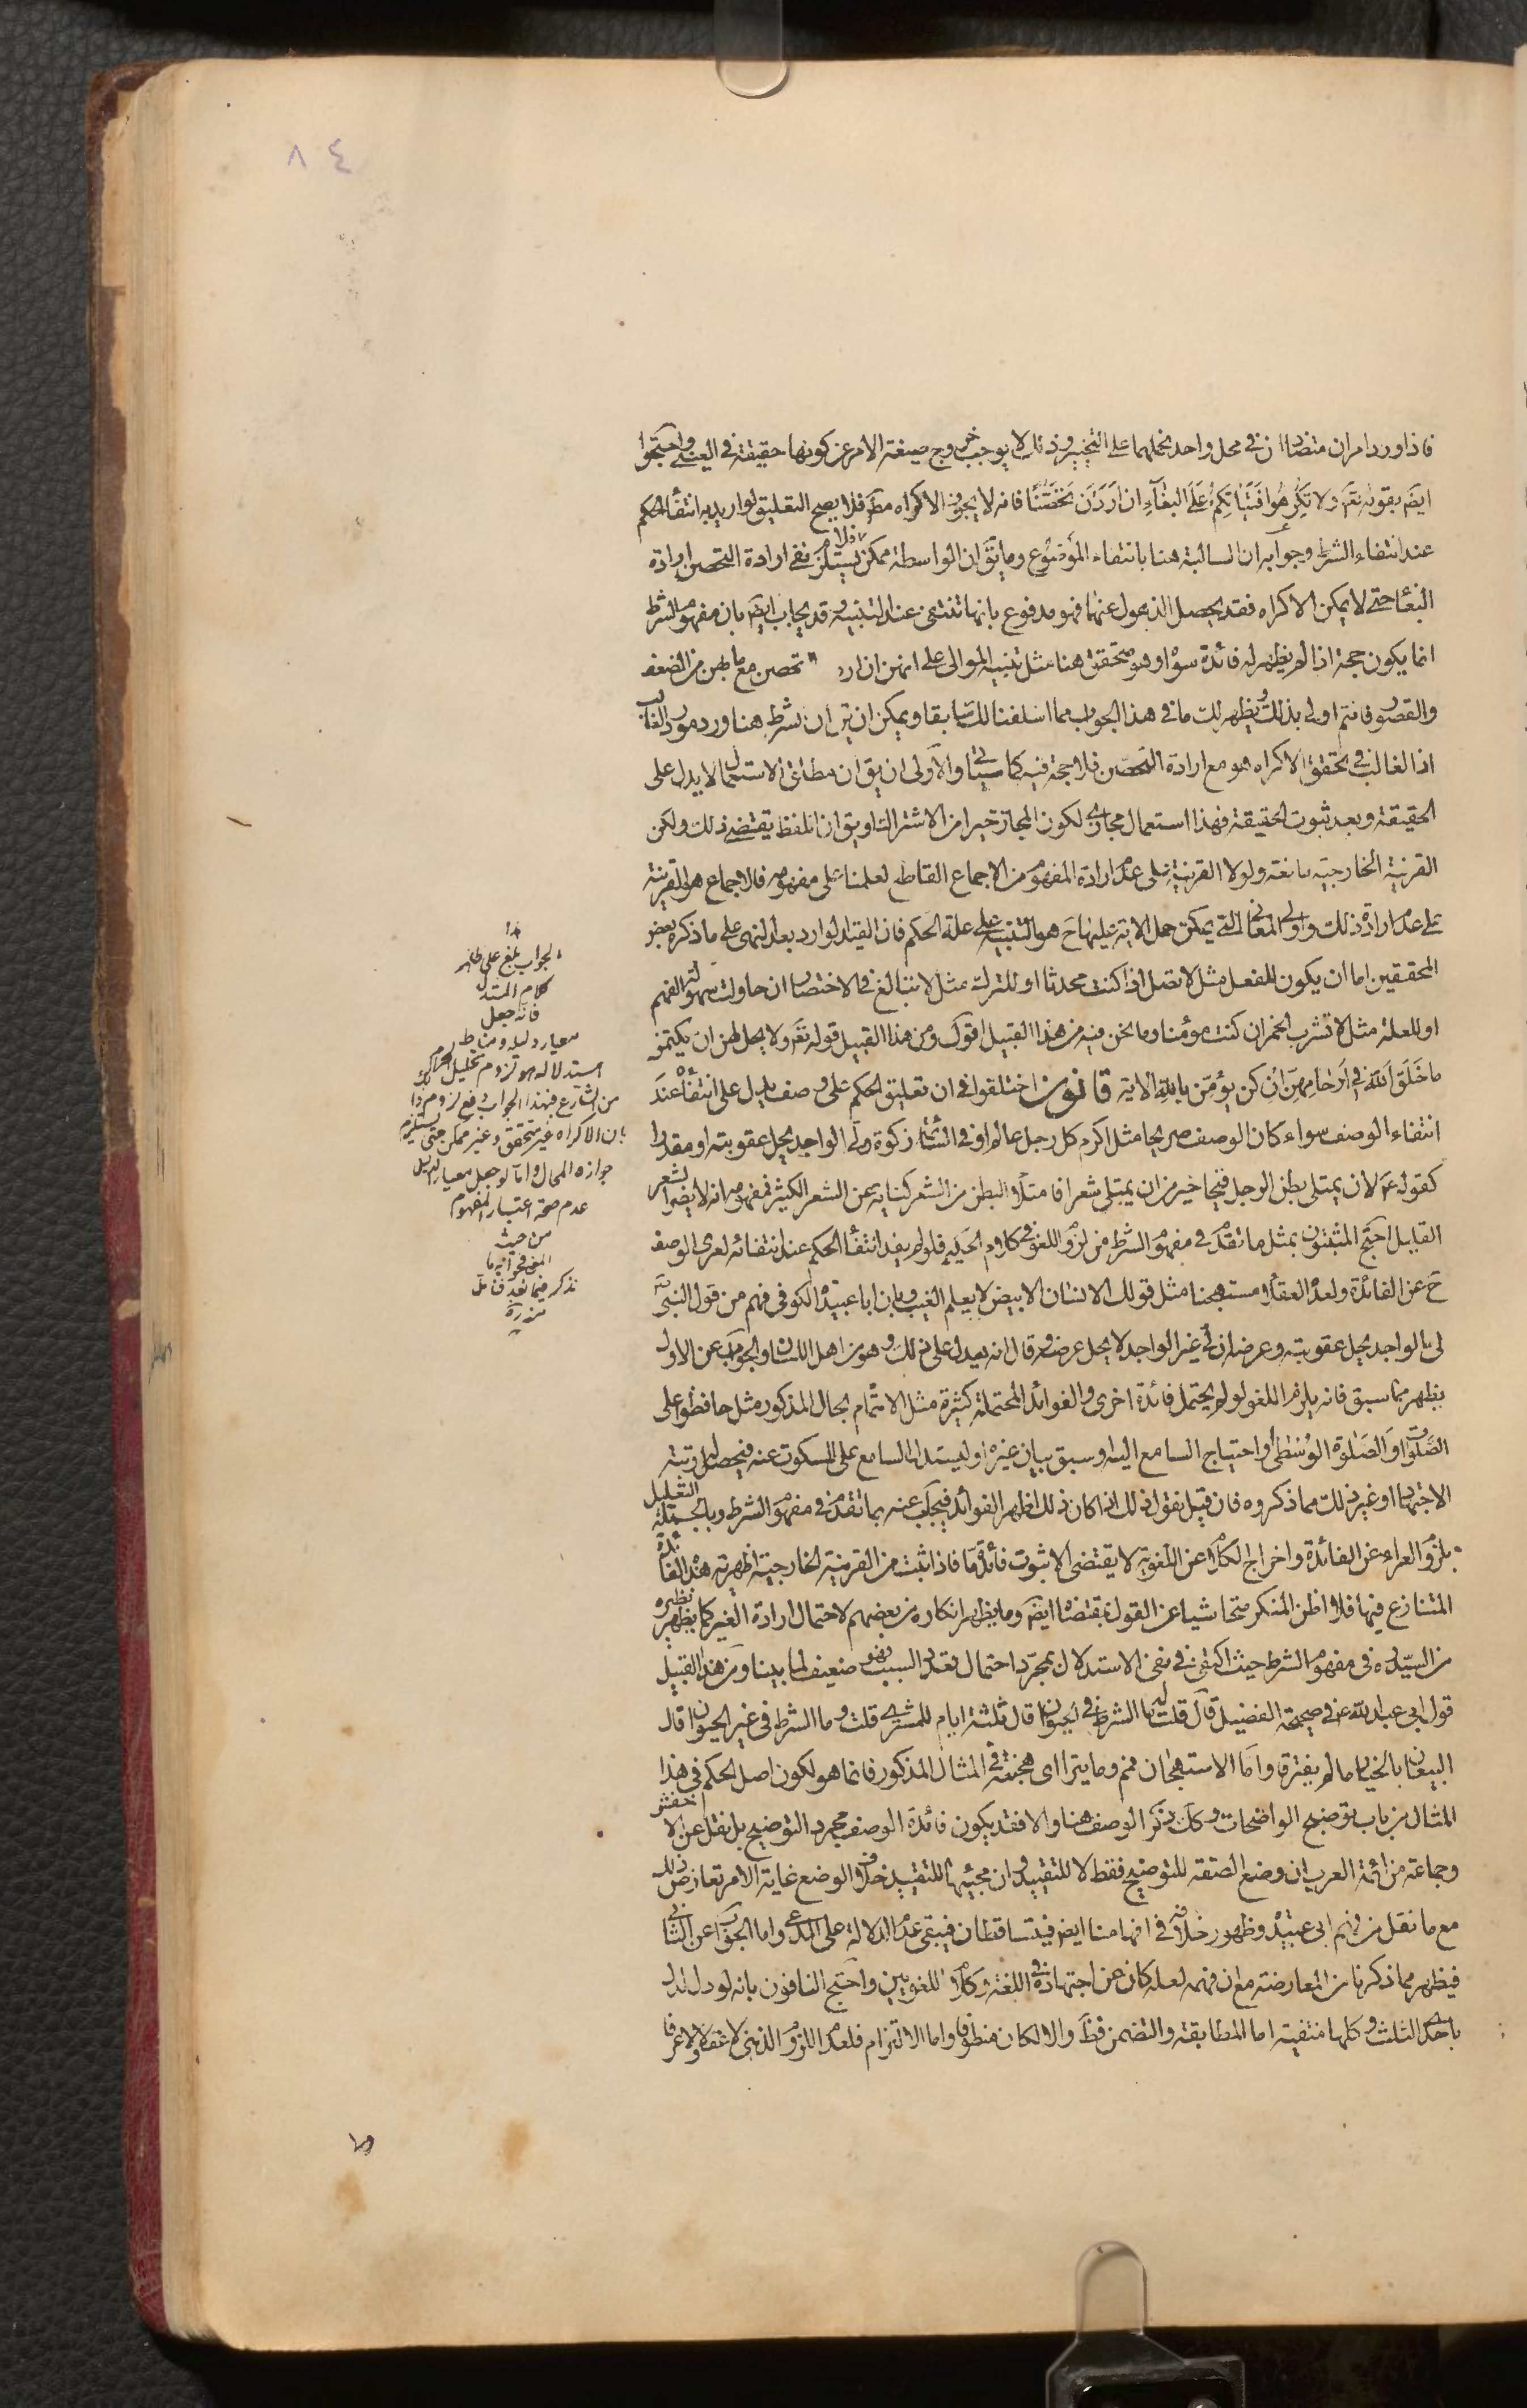 ٨٤
فاذا ورد امران متضادان في محل واحد نحملهما على التخيير وذلك لا يوجب خروج صيغة الامر عن كونها حقيقة في العيني واحتجوا
ايضَ بقوله تعَ ولا تكرهوا فتياتكم على البغآء ان اردن تحصّنًا فانه لا يجوز الاكراه مطَ فلا يصح التعليق لو اريد به انتفاء الحكم
عند انتفاء الشرط وجوابه ان السالبة هنا بانتفاء الموضوع وما يقَ ان الواسطة ممكن فلا يستلزم نفي ارادة التحصن ارادة
البغا حتى لا يمكن الاكراه فقد يحصل الذهول عنهما فهو مدفوع بانها تنتفى عند التنبيه وقد يجاب ايضَ بان مفهوم الشرط
انما يكون حجة اذا لم يظهر له فائدة سواه وهو متحقق هنا مثل تنبيه الموالى على انهن ان اردن تحصن مع ما بهن من الضعف
والقصور فانتم اولى بذلك ويظهر لك ما في هذا الجواب مما اسلفنا لك سابقا ويمكن ان يق ان الشرط هنا ورد مورد الغالب
اذ الغالب في تحقق الاكراه هو مع ارادة التحصّن فلا حجة فيه كما سيأتي والاولى ان يق ان مطلق الاستعمال لا يدل على
الحقيقة وبعد ثبوت الحقيقة فهذا استعمال مجازي لكون المجاز خيرا من الاشتراك او يق ان اللفظ يقتضي ذلك ولكن
القرنية الخارجية مانعة ولولا القرنية على عدم ارادة المفهوم من الاجماع القاطع لعلمنا على مفهومه فالاجماع هو القرينة
على عدم ارادة ذلك واولى المعاني التي يمكن حمل الاية عليها حَ هو التنبيه على علة الحكم فان القيد الوارد بعد النهى على ما ذكره بعض
المحققين اما ان يكون للفعل مثل لا تصل اذا كنت محدثا او للترك مثل لا تبالغ في الاختصار ان حاولت سهولة الفهم
او للعلة مثل لا تشرب الخمر ان كنت مؤمنا وما نحن فيه من هذا القبيل اقول ومن هذا القبيل قوله تعَ ولا يحل لهن ان يكتمن
ما خلق الله في ارحامهنّ ان كن يؤمنّ بالله الاية قانون اختلفوا في ان تعليق الحكم على وصف يدل على انتفائه عند
انتفاء الوصف سواء كان الوصف صريحا مثل اكرم كل رجل عالم او في السائمة زكوة ولي الواجد يحل عقوبته او مقدرا
كقوله عَ لان يمتلي بطن الرجل قيحا خير من ان يمتلي شعرا فامتلاء البطن من الشعر كناية عن الشعر الكثير فمفهومه انه لا يضر الشعر
القليل احتج المثبتون بمثل ما تقدم في مفهوم الشرط من لزوم اللغو في كلام الحكيم فلو لم يفد انتفاء الحكم عند انتفائه لعرى الوصف
حَ عن الفائدة ولعده العقلاء مستهجنا مثل قولك الانسان الابيض لا يعلم الغيب وبان ابا عبيدة الكوفى فهم من قول النبيّ
لي الواجد يحل عقوبته وعرضه ان لي غير الواجد لا يحل عرضه وقال انه يدل على ذلك وهو من اهل اللسان والجواب عن الاول
يظهر مما سبق فانه يلزم اللغو لو لم يحتمل فائدة اخرى والفوائد المحتملة كثيرة مثل الاهتمام بحال المذكور مثل حافظوا على
الصّلوات والصّلوة الوسطى او احتياج السامع اليه او سبق بيان غيره او ليستدل السامع على المسكوت عنه فيحصل له رتبة
الاجتهاد او غير ذلك مما ذكروه فان قيل نقول ذلك اذا كان ذلك اظهر الفوائد فيجاب عنه بما تقدم في مفهوم الشرط وبالجملة التعليل
بلزوم العراء عن الفائدة واخراج الكلام عن اللغوية لا يقتضى الا ثبوت فائدة ما فاذا ثبت من القرنية الخارجية اظهرية هذه الفائدة
المتنازع فيها فلا اظن المنكر متحاشيا عن القول بمقتضاها ايضَ وما يظهر انكاره من بعضهم لاحتمال ارادة الغير كما يظهر نظيره
من السيّد ره في مفهوم الشرط حيث اكتفى في نفى الاستدلال بمجرّد احتمال تعدد السبب فهو ضعيف لما بينا ومن هذا القبيل
قول ابي عبد الله ع في صحيحة الفضيل قال قلت له ما الشرط في الحيوان قال ثلثة ايام للمشترى قلت وما الشرط في غير الحيوان قال
البيعان بالخيار ما لم يفترقا واما الاستهجان فمنم وما يتراءى هجنته في المثال المذكور فانما هو لكون اصل الحكم في هذا
المثال من باب توضيح الواضحات وكك ذكر الوصف هنا والا فقد يكون فائدة الوصف مجرد التوضيح بل نقل عن الاخفش
وجماعة من ائمة العرب ان وضع الصفة للتوضيح فقط لا للتقييد وان مجيئها للتقييد خلاف الوضع غاية الامر تعارض ذلك
مع ما نقل من فهم ابى عبيدة وظهور خلافه في افهامنا ايضَ فيتساقطان فيبقى عدم الدلالة على المدعى واما الجواب عن الثاني
فيظهر مما ذكرنا من المعارضة مع ان فهمه لعله كان عن اجتهاده في اللغة وكلام اللغويين واحتج النافون بانه لو دل لدل
باحدى الثلث وكلها منتفية اما المطابقة والتضمن فظَ والا لكان منطوقا واما الالتزام فلعدم اللزوم الذهنى لا عقلا ولا عرفا
هذا
الجواب بلغ على ظاهر
كلام المستدل
فانه جعل
معيار دليله ومناط
استدلاله هو لزوم تحليل الحرام
من الشارع فبهذا الجواب دفع لزوم ذلك
بان الاكراه غير متحقق وغير ممكن حتى يستلزم
جوازه المحال واما لو جعل معيار الدليل
عدم صحة اعتبار المفهوم
من حيث
نذكر فيما بعد فتامل
منه ره